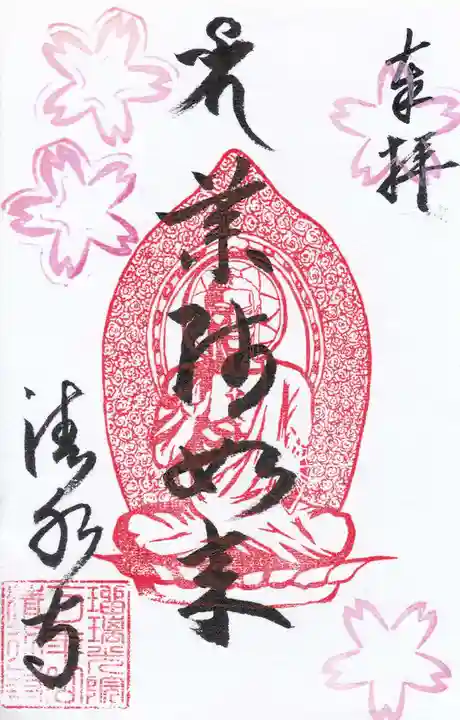 奉拝
薬師如来
清水寺
瑠璃光院